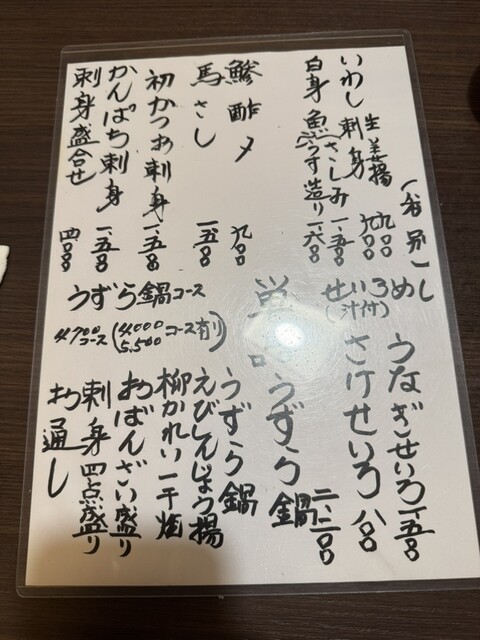 一品
生姜揚 九〇〇
いわし刺身 九〇〇
(さしみ 一、五〇〇
白身魚うす造り 一、六〇〇
鯵酢〆 九〇〇
馬さし 一、五〇〇
初かつお刺身 一、五〇〇
かんぱち刺身 一、五〇〇
刺身盛合せ 四、〇〇〇
せいろめし
(汁付)
うなぎせいろ 一、五〇〇
さけせいろ 八〇〇
単品
うずら鍋 二、二〇〇
うずら鍋コース
4,700コース (4,000 5,500 コース有)
うずら鍋
えびしんじょう揚
柳かれい一干焼
おばんざい盛り
刺身四点盛り
お通し